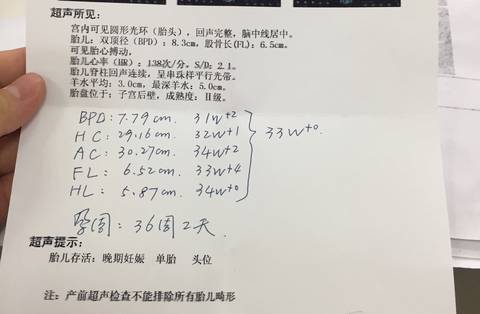 超声所见:
宫内可见圆形光环(胎头),回声完整,脑中线居中。
胎儿:双顶径(BPD):8.3cm,股骨长(FL):6.5cm。
可见胎心搏动,
胎儿心率(HR):138次/分,S/D:2.1。
胎儿脊柱回声连续,呈串珠样平行光带。
羊水平均:3.0cm,最深羊水:5.0cm。
胎盘位于:子宫后壁,成熟度:Ⅱ级。
BPD:7.79cm. 31W+2
HC:29.16cm. 32W+1
AC:30.27cm. 34W+2
FL:6.52cm. 33W+4
HL:5.87cm. 34W+0
33W+0.
孕周:36周2天.
超声提示:
胎儿存活:晚期妊娠 单胎 头位
注:产前超声检查不能排除所有胎儿畸形